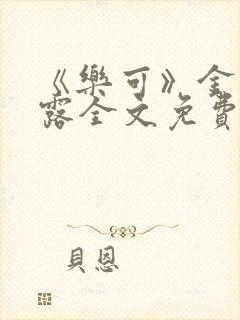 《樂可》金
露全文免費
貝恩